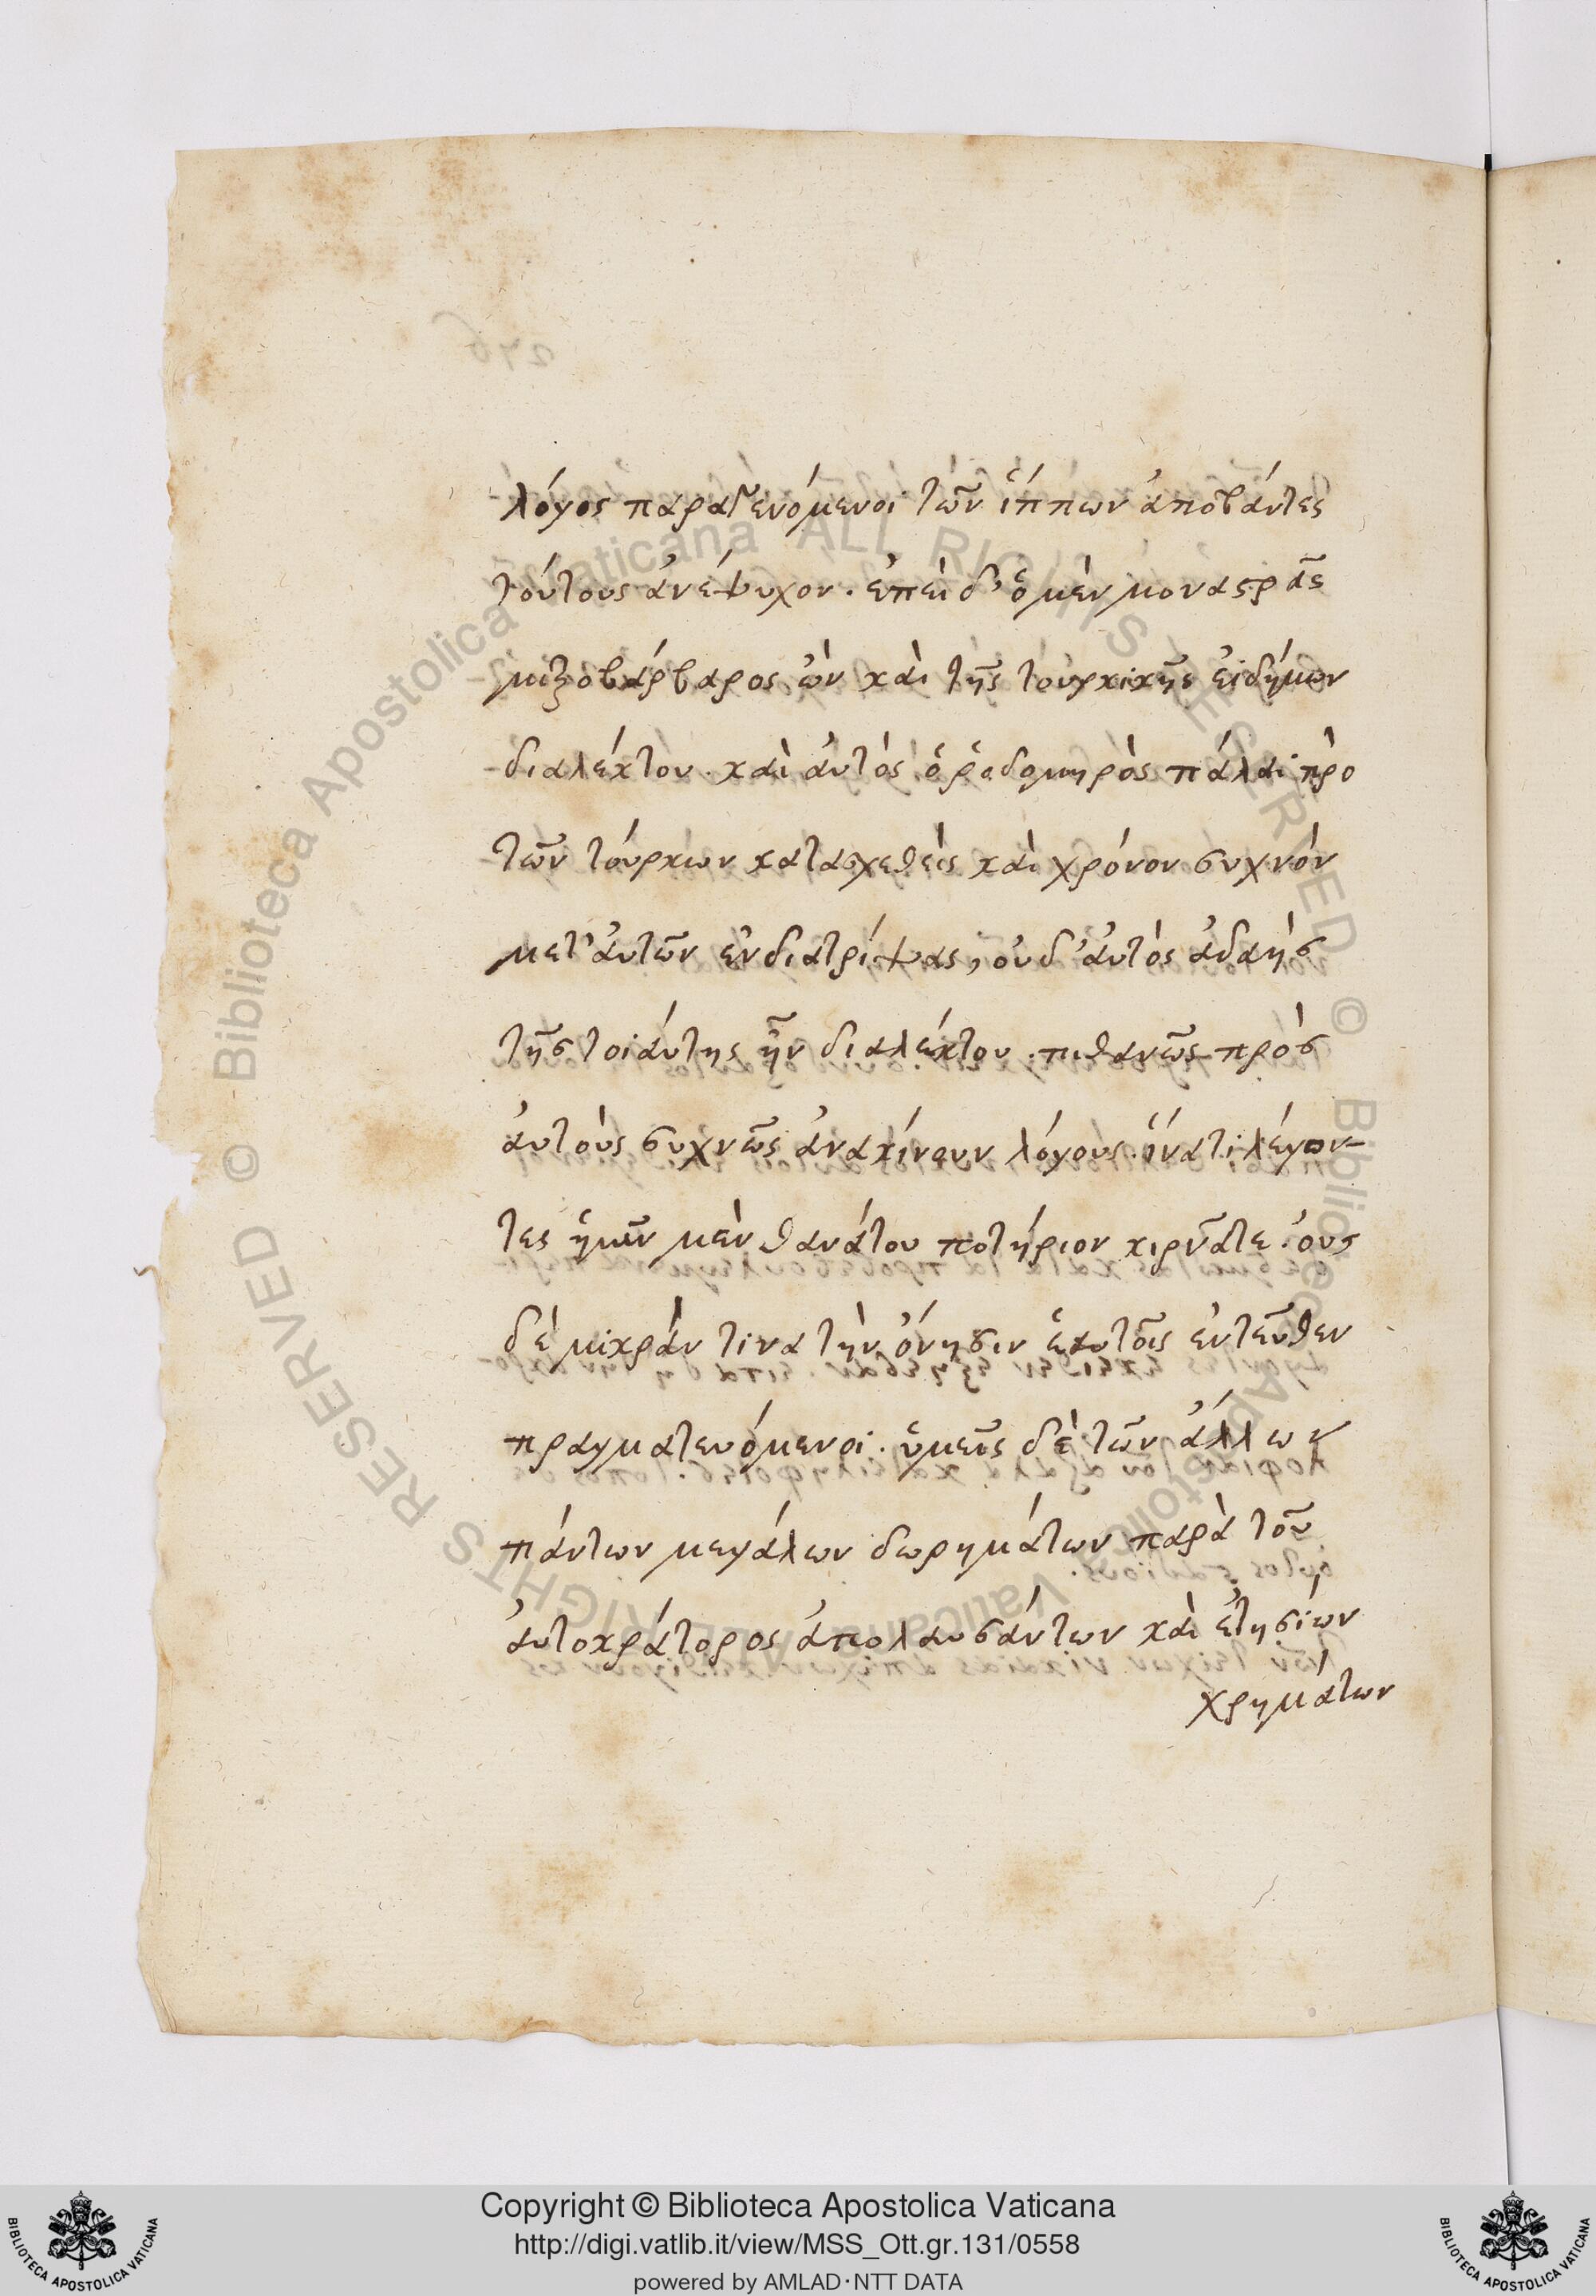 λόγος παραγενόμενοι τῶν ἵππων ἀποβάντες
τούτους ἀνέψυχον. ἐπεὶ δ' ὁ μὲν μοναστρᾶς
μιξοβάρβαρος ὢν καὶ τῆς τουρκικῆς εἰδήμων
διαλέκτου. καὶ αὐτὸς ὁ ῥοδομηρὸς πάλαι πρὸ
τῶν τούρκων κατασχεθεὶς καὶ χρόνον συχνόν
μετ' αὐτῶν ἐνδιατρίψας, οὐδ' αὐτὸς ἀδαὴς
τῆς τοιαύτης ἦν διαλέκτου. πιθανῶς πρὸς
αὐτοὺς συχνῶς ἀνακίνουν λόγους. ἵνα τί λέγον-
τες ἡμῖν μὲν θανάτου ποτήριον κιρνᾶτε. οὐς
δὲ μικράν τινα τὴν ὄνησιν ἑαυτοῖς ἐντεῦθεν
πραγματευόμενοι. ὑμεῖς δὲ τῶν ἄλλων
πάντων μεγάλων δωρημάτων παρὰ τοῦ
αὐτοκράτορος ἀπολαυσάντων καὶ ἐτησίων
χρημάτων
276
© Biblioteca Apostolica Vaticana ALL RIGHTS RESERVED © Biblioteca Apostolica Vaticana ALL RIGHTS RESERVED
Copyright © Biblioteca Apostolica Vaticana
http://digi.vatlib.it/view/MSS_Ott.gr.131/0558
powered by AMLAD·NTT DATA
BIBLIOTECA APOSTOLICA VATICANA
BIBLIOTECA APOSTOLICA VATICANA